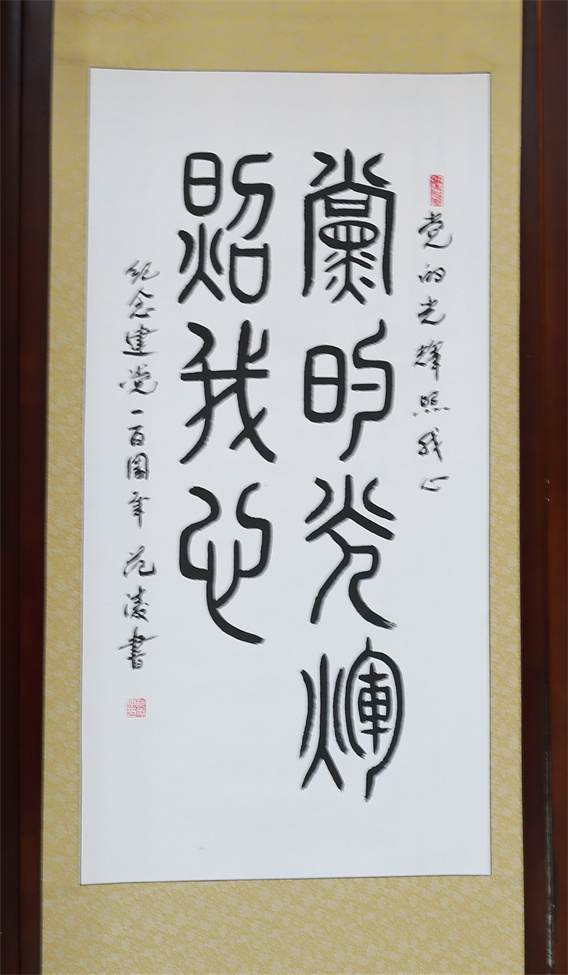 党的光辉照我心
黨的光煇
照我心
纪念建党一百周年 范凌书